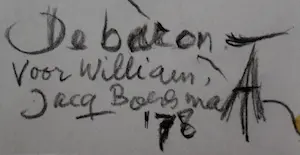 De baron
Voor William,
Jacq Boersma
'78